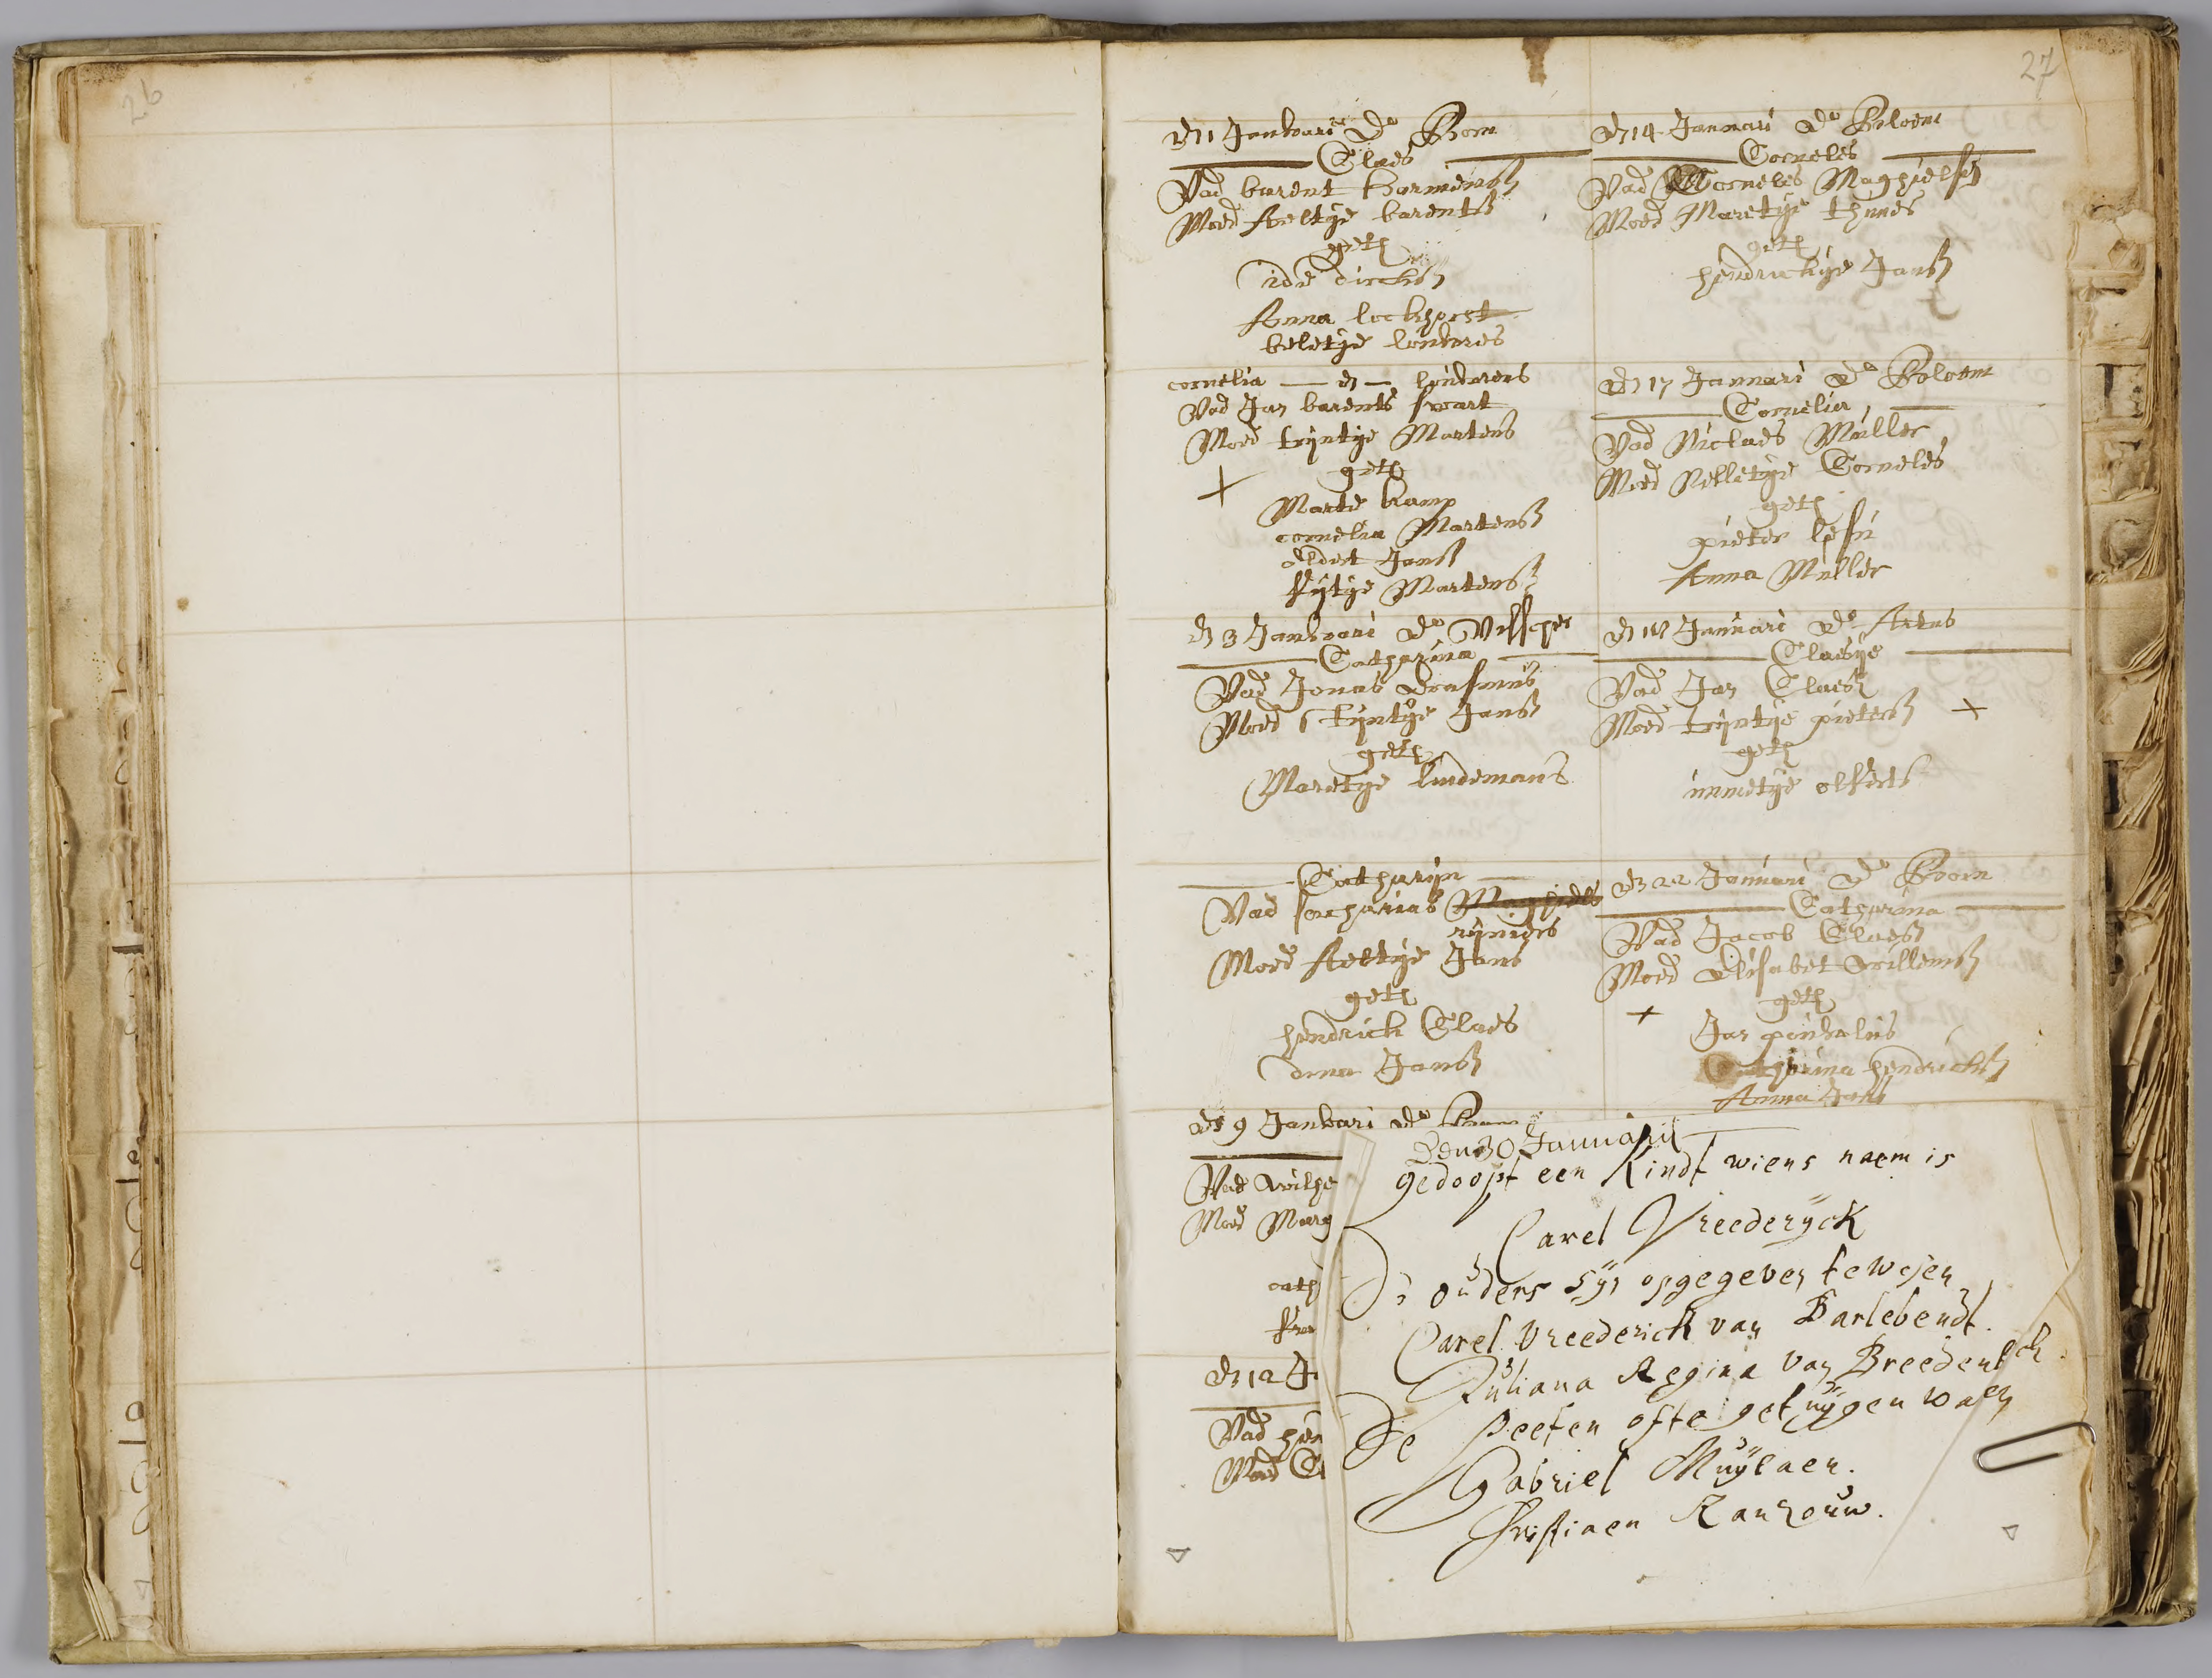 26
27
d 1 Januari Do Boom
Claes
Vad barent harmensz
Moed Aeltye barents
get
ide dircksz
Anna lockhorst
beletye lonkeres
cornelia
Vad Jan barents swart
Moed tryntye Martens
get
Marte kamp
cornelia Martens
oldert Jans
fytye Martens
d 3 Januari Do Visscher
Catharina
Vad Jonas Erasmus
Moed Styntye Jans
get
Maretye lindemans
Catharyn
Vad sacharias
rynders
Moed Aeltye Jans
get
hendrick Claes
dina Jans
d 9 Januari Do
Vad wilhe
Moed Marg
cath
fra
d 12 J
Vad hen
Moed
d 14 Januari Do Beloem
Corneles
Vad Corneles Maghielsz
Moed Maretye thunes
get
hendrickye Jans
d 17 Januari Do Boloem
Cornelia
Vad Niclaes Muller
Moed Nelletye Corneles
get
pieter
Anna Muller
d 18 Januari Do
Claesye
Vad Jan Claesz
Moed tryntye pieters
get
immetye olferts
d 22 Januari Do Boom
Catharina
Vad Jacob Claes
Moed Elisabet Willems
get
Jan
Catharina hendricks
Anna Jans
Den 30 Januarij
gedoopt een Kindt wiens naem is
Carel Vreederyck
De ouders syn opgegeven te wesen
Carel Vreederick van Barlebendt.
Juliana Regina van Breedenbch.
De Peeten ofte getuygen waen
Gabriel Muylaer.
Christiaen Ranzouw.